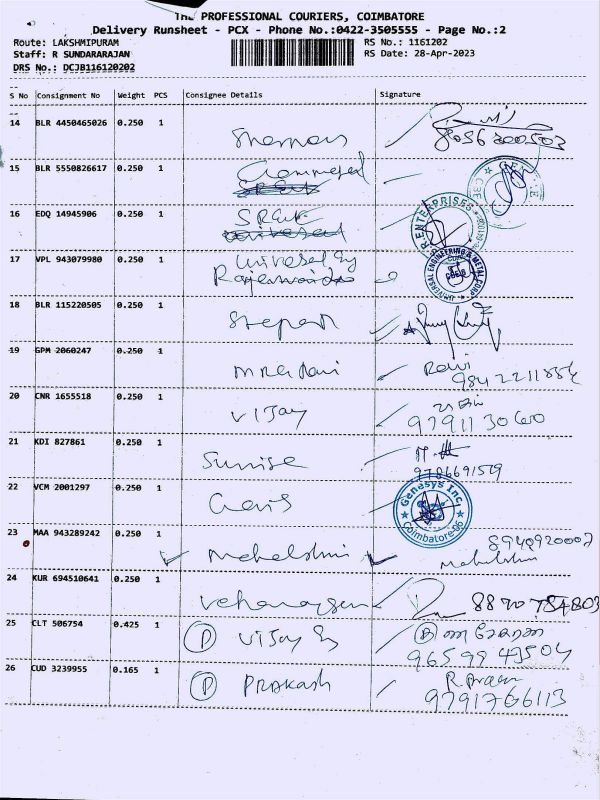 THE PROFESSIONAL COURIERS, COIMBATORE
Delivery Runsheet - PCX - Phone No.:0422-3505555 - Page No.:2
Route: LAKSHMIPURAM
RS No.: 1161202
Staff: R SUNDARARAJAN
RS Date: 28-Apr-2023
DRS No.: DCJB116120202
S No Consignment No Weight PCS Consignee Details Signature
14 BLR 4450465026 0.250 1
8056200503
15 BLR 5550826617 0.250 1
16 EDQ 14945906 0.250 1
ENTERPRISES
17 VPL 943079980 0.250 1 Universal Eg
UNIVERSAL ENGINEERING & METAL CORP
18 BLR 115220505 0.250 1
19 GPM 2060247 0.250 1 Ravi
9842211854
20 CNR 1655518 0.250 1 Vijay
9791130600
21 KDI 827861 0.250 1 Sunrise
9786691519
22 VCM 2001297 0.250 1
Genesys Inc.
Coimbatore-06
23 MAA 943289242 0.250 1 Mahalshmi 8940920002
24 KUR 694510641 0.250 1 8870784803
25 CLT 506754 0.425 1 P Vijay Eg
9659943504
26 CUD 3239955 0.165 1 P PRAKASH
9791766113